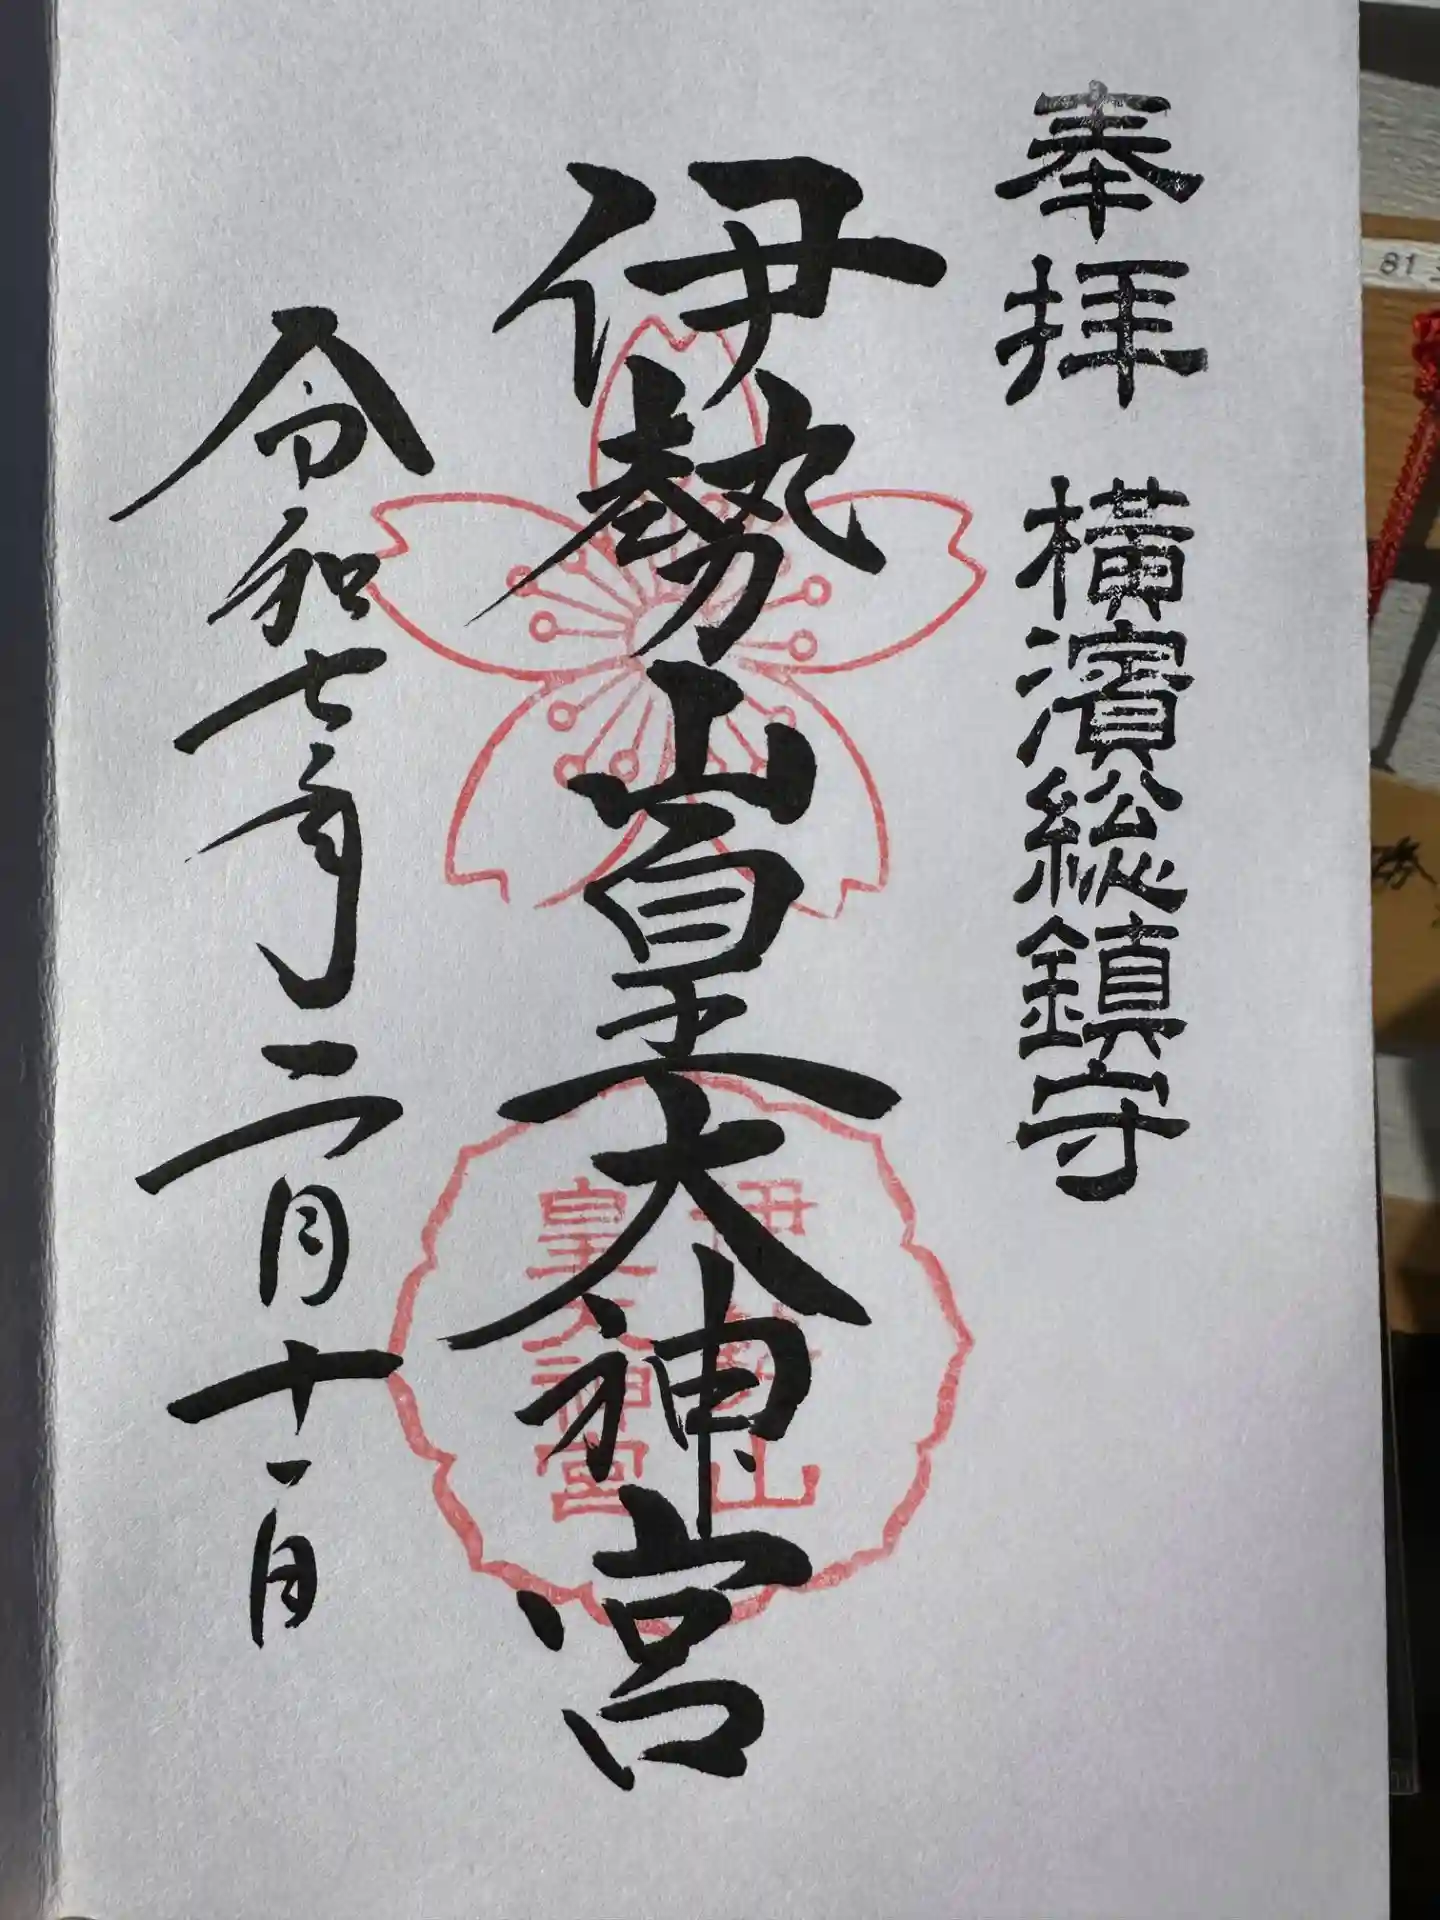 奉拝 横濱総鎮守
伊勢山皇大神宮
伊勢山
皇大神宮
令和七年二月十一日
81